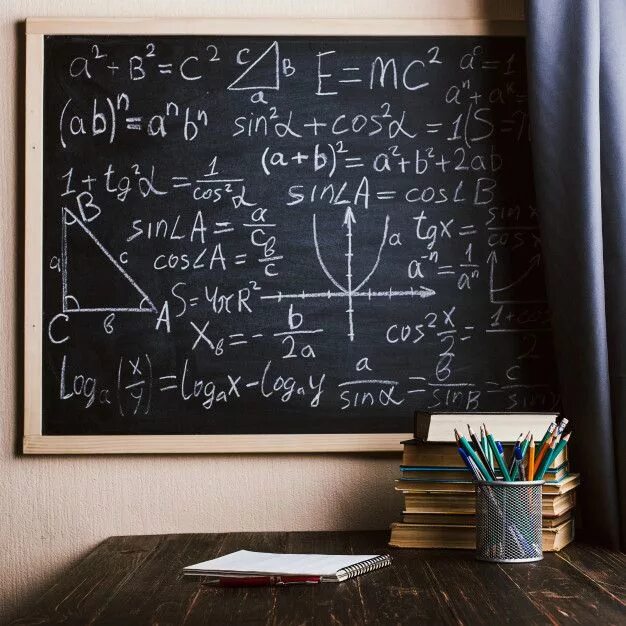 a² + B² = C² C B a E = MC² a° = 1
aⁿ + a
(ab)ⁿ = aⁿbⁿ sin²α + cos²α = 1 (S =
(a+b)² = a² + b² + 2ab
1 + tg²α = 1/cos²α sin∠A = cos∠B
B
sin∠A = a/c a tgx = sin x/cos x
a c cos∠A = в/c a⁻ⁿ = 1/aⁿ
S = 4πR²
C в A Xв = - b/2a cos² x/2 = 1+cos /2
Logₐ(x/y) = logₐx - logₐy a/sinα = в/sinB = c/sin